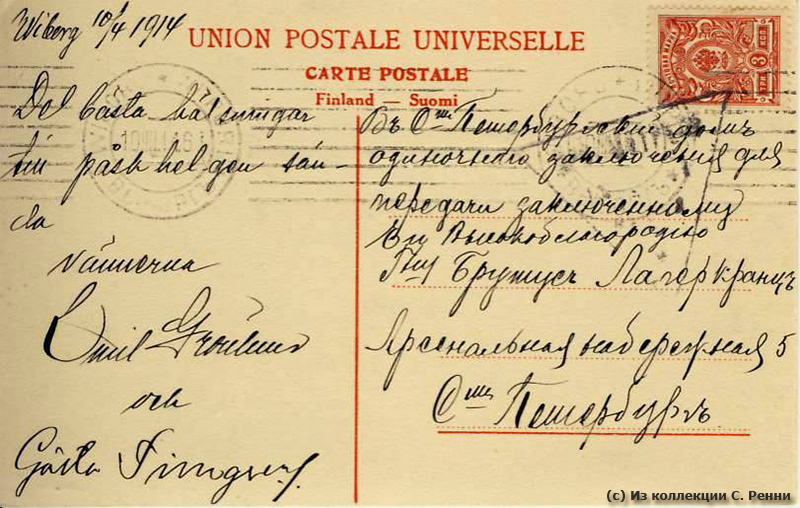 Wiborg 10/4 1914
UNION POSTALE UNIVERSELLE
CARTE POSTALE
Finland — Suomi
De bästa hälsningar
till påsk helgen sän-
da
vännerna
Emil Grönlund
och
Gösta
Въ С-тъ Петербургскій домъ
одиночнаго заключенія для
передачи заключенному
Его Высокоблагородію
Г-ну Брутусъ Лагеркранцъ
Арсенальная набережная 5
С-тъ Петербургъ
(c) Из коллекции С. Ренни